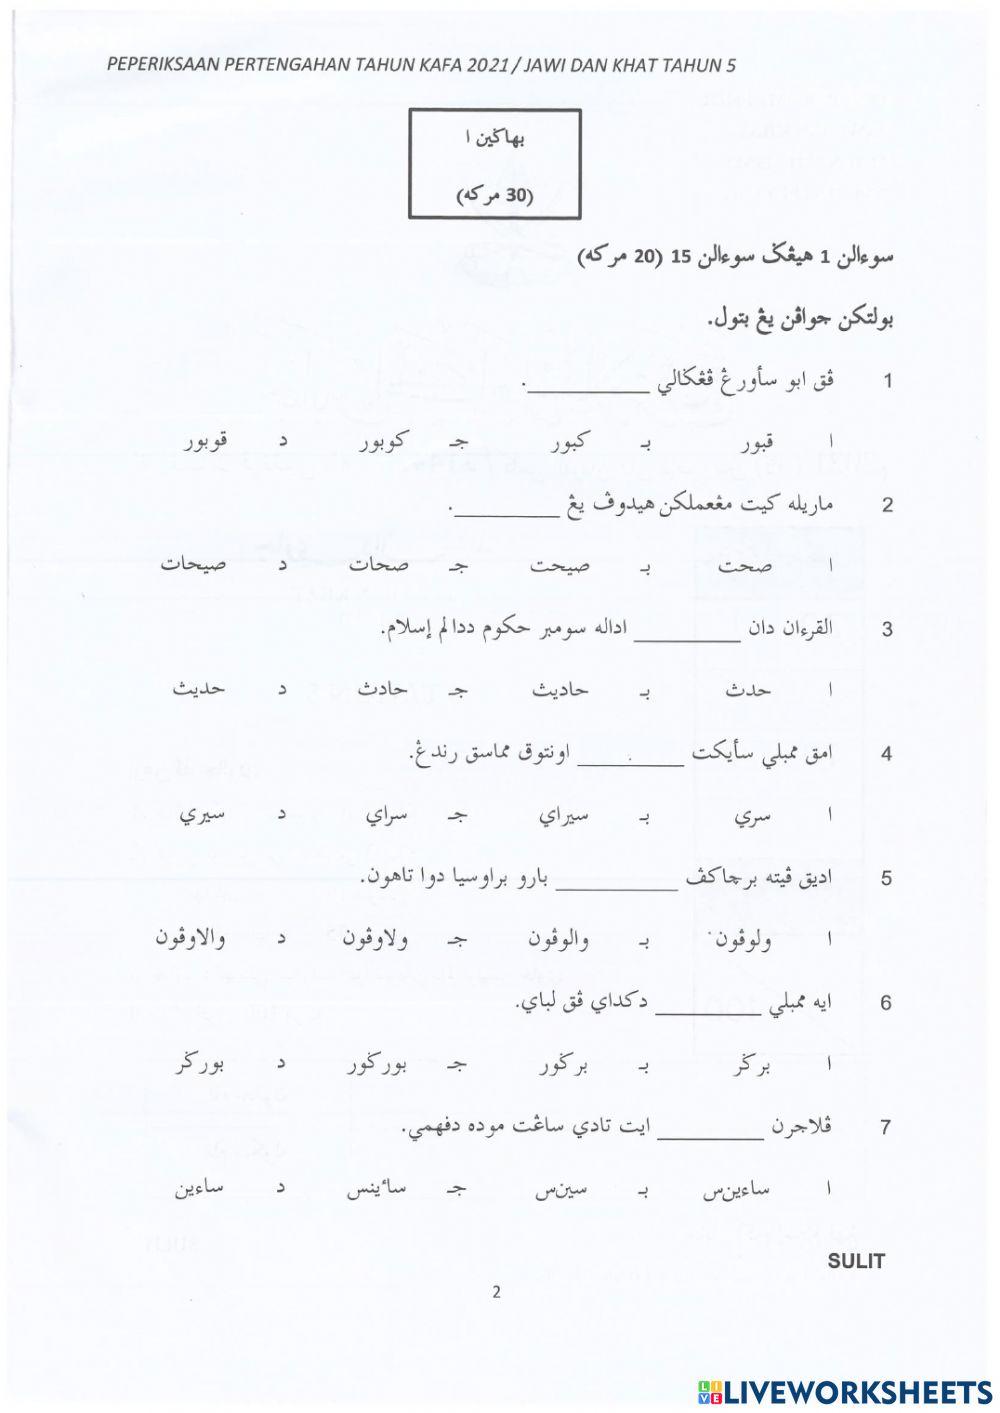 PEPERIKSAAN PERTENGAHAN TAHUN KAFA 2021 / JAWI DAN KHAT TAHUN 5
بهاݢين ا
(30 مركه)
سوءالن 1 هيڠݢ سوءالن 15 (20 مركه)
بولتكن جواڤن يڠ بتول.
1 ڤق ابو سأورڠ ڤڠݢالي __________.
ا قبور بـ كبور جـ كوبور د قوبور
2 ماريله كيت مڠعملكن هيدوڤ يڠ __________.
ا صحت بـ صيحت جـ صحات د صيحات
3 القرءان دان __________ اداله سومبر حكوم ددالم إسلام.
ا حدث بـ حاديث جـ حادث د حديث
4 امق ممبلي سأيكت __________ اونتوق مماسق رندڠ.
ا سري بـ سيراي جـ سراي د سيري
5 اديق ڤيته برچاكڤ __________ بارو براوسيا دوا تاهون.
ا ولوڤون بـ والوڤون جـ ولاوڤون د والاوڤون
6 ايه ممبلي __________ دكداي ڤق لباي.
ا برݢر بـ برݢور جـ بورݢور د بورݢر
7 ڤلاجرن __________ ايت تادي ساڠت موده دفهمي.
ا ساءينس بـ سينس جـ سائينس د ساءين
SULIT
2
LIVEWORKSHEETS